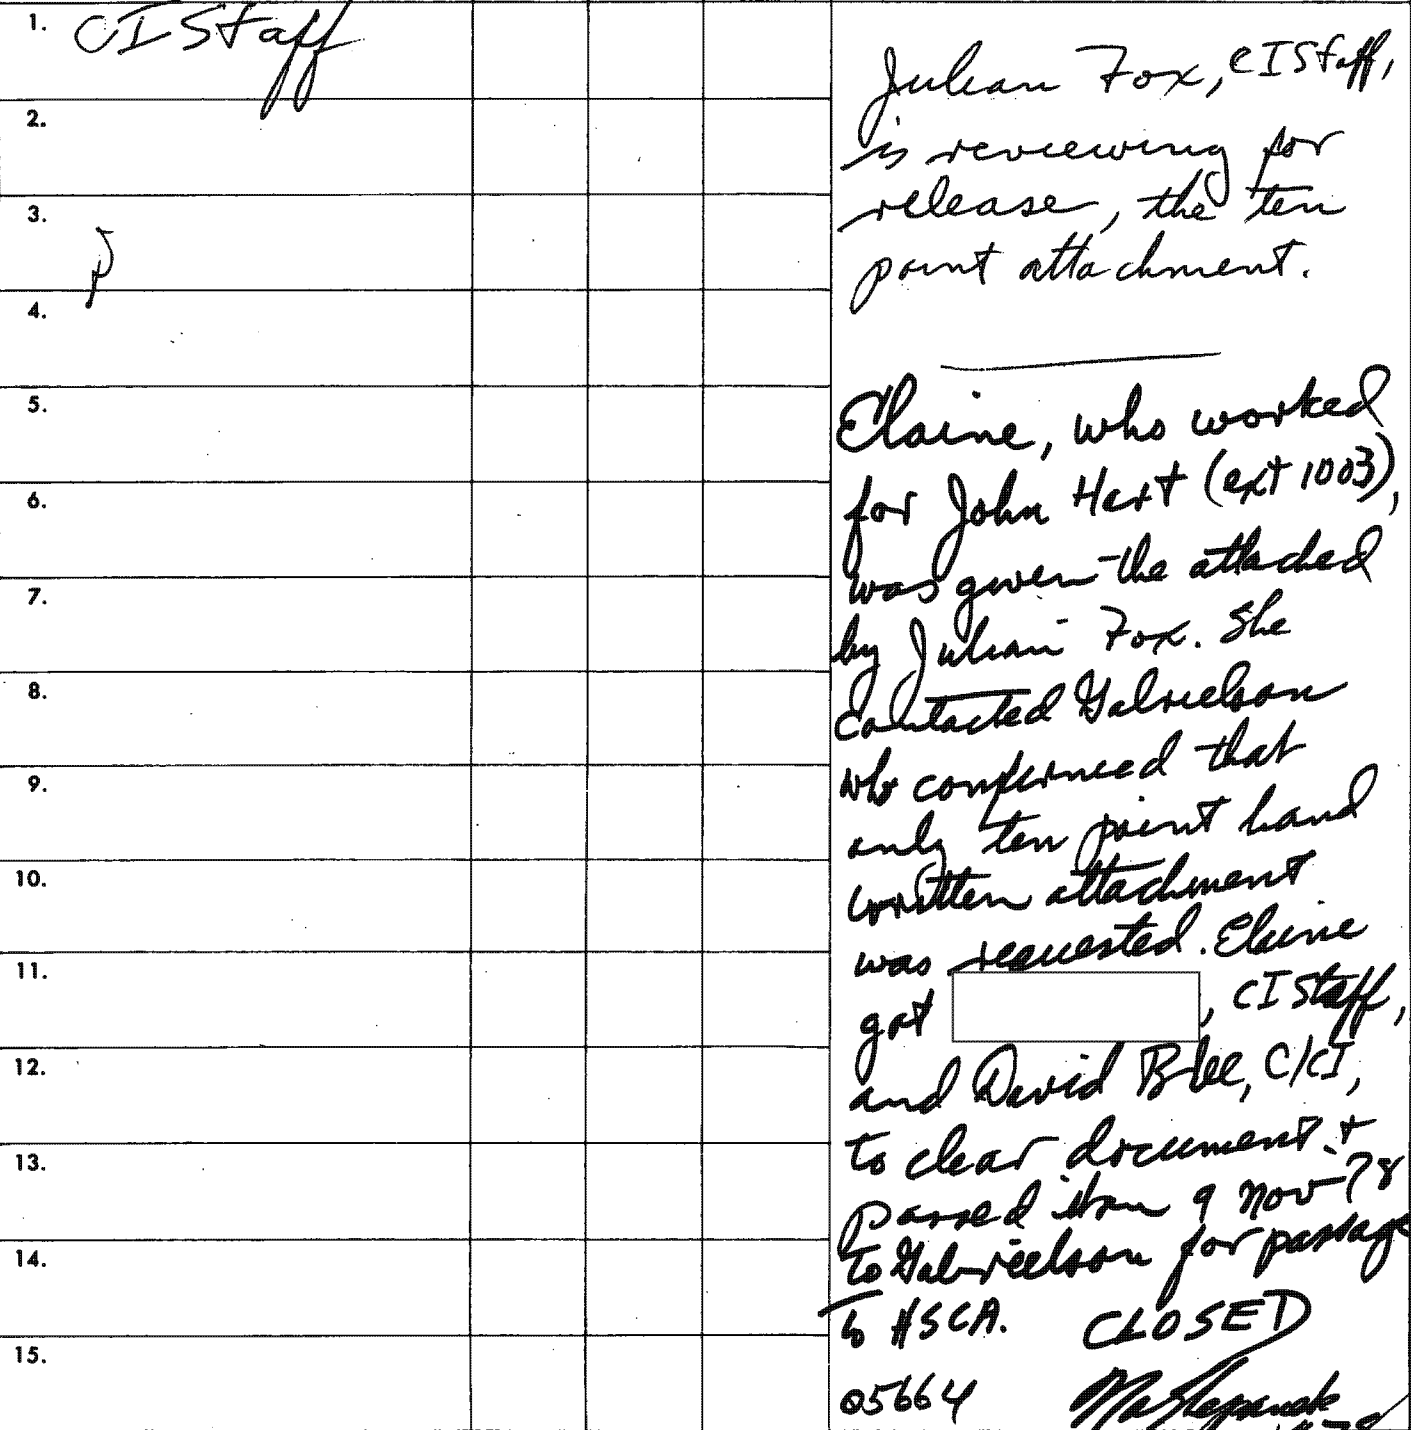 1. CI Staff
2.
3.
4.
5.
6.
7.
8.
9.
10.
11.
12.
13.
14.
15.
Julian Fox, CI Staff,
is reviewing for
release, the ten
point attachment.
Elaine, who worked
for John Hart (ext 1003),
was given the attached
by Julian Fox. She
contacted Gabrielson
who confirmed that
only ten point hand
written attachment
was requested. Elaine
got , CI Staff,
and David Blee, C/CI,
to clear document &
passed it on 9 Nov 78
to Gabrielson for passage
to HSCA. CLOSED
05664